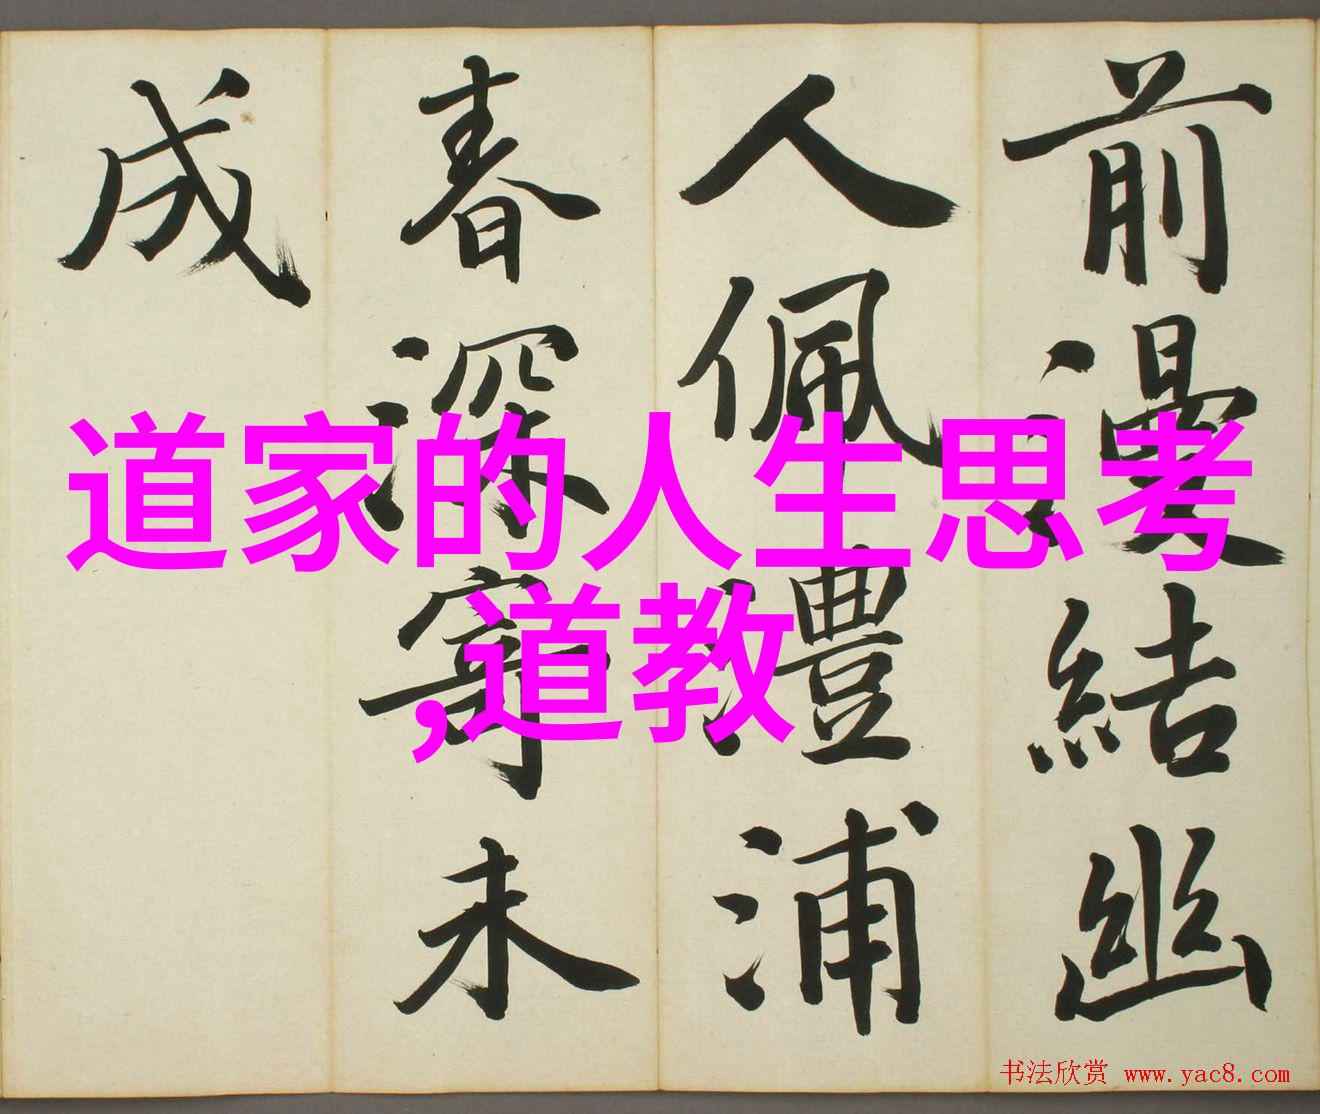 前漫結幽
人佩澧浦
春深寄未
成
道家的人生思考
,道教
书法欣赏 www.yac8.com